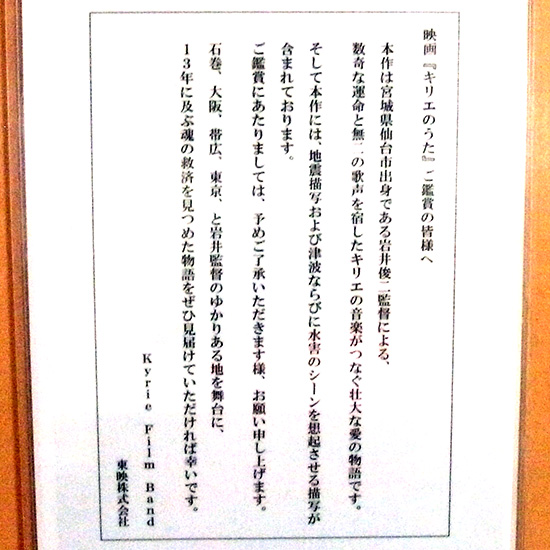 映画『キリエのうた』ご鑑賞の皆様へ
本作は宮城県仙台市出身である岩井俊二監督による、
数奇な運命と無二の歌声を宿したキリエの音楽がつなぐ壮大な愛の物語です。
そして本作には、地震描写および津波ならびに水害のシーンを想起させる描写が
含まれております。
ご鑑賞にあたりましては、予めご了承いただきます様、お願い申し上げます。
石巻、大阪、帯広、東京、と岩井監督のゆかりある地を舞台に、
13年に及ぶ魂の救済を見つめた物語をぜひ見届けていただければ幸いです。
Kyrie Film Band
東映株式会社